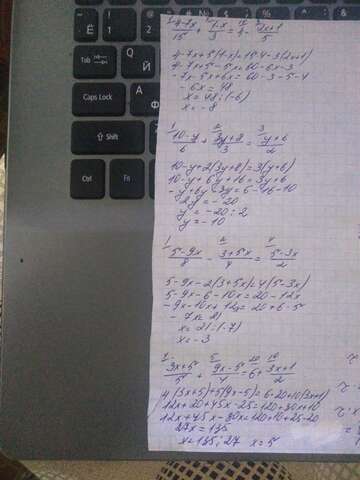 Ё
Tab
Й
Caps Lock
Ф
⇧ Shift
Ctrl
Fn
1 4-7x/15 + 5 1-x/3 = 15 4 - 3 2x+1/5
4-7x+5(1-x)=15·4-3(2x+1)
4-7x+5-5x=60-6x-3
-7x-5x+6x=60-3-5-4
-6x=48
x=48:(-6)
x=-8
1 10-y/6 + 2 3y+8/3 = 3 y+6/2
10-y+2(3y+8)=3(y+6)
10-y+6y+16=3y+18
-y+6y-3y=
2y=-20
y=-20:2
y=-10
1 5-9x/8 - 2 3+5x/4 = 4 5-3x/2
5-9x-2(3+5x)=4(5-3x)
5-9x-6-10x=20-12x
-9x-10x+12x=20+6-5
-7x=21
x=21:(-7)
x=-3
3x+5/5 + 5 9x-5/4 = 20 6 + 10 3x+1/2
4(3x+5)+5(9x-5)=6·20+10(3x+1)
12x+20+45x-25=120+30x+10
12x+45x-30x=120+10+25-20
27x=135
x=135:27 x=5